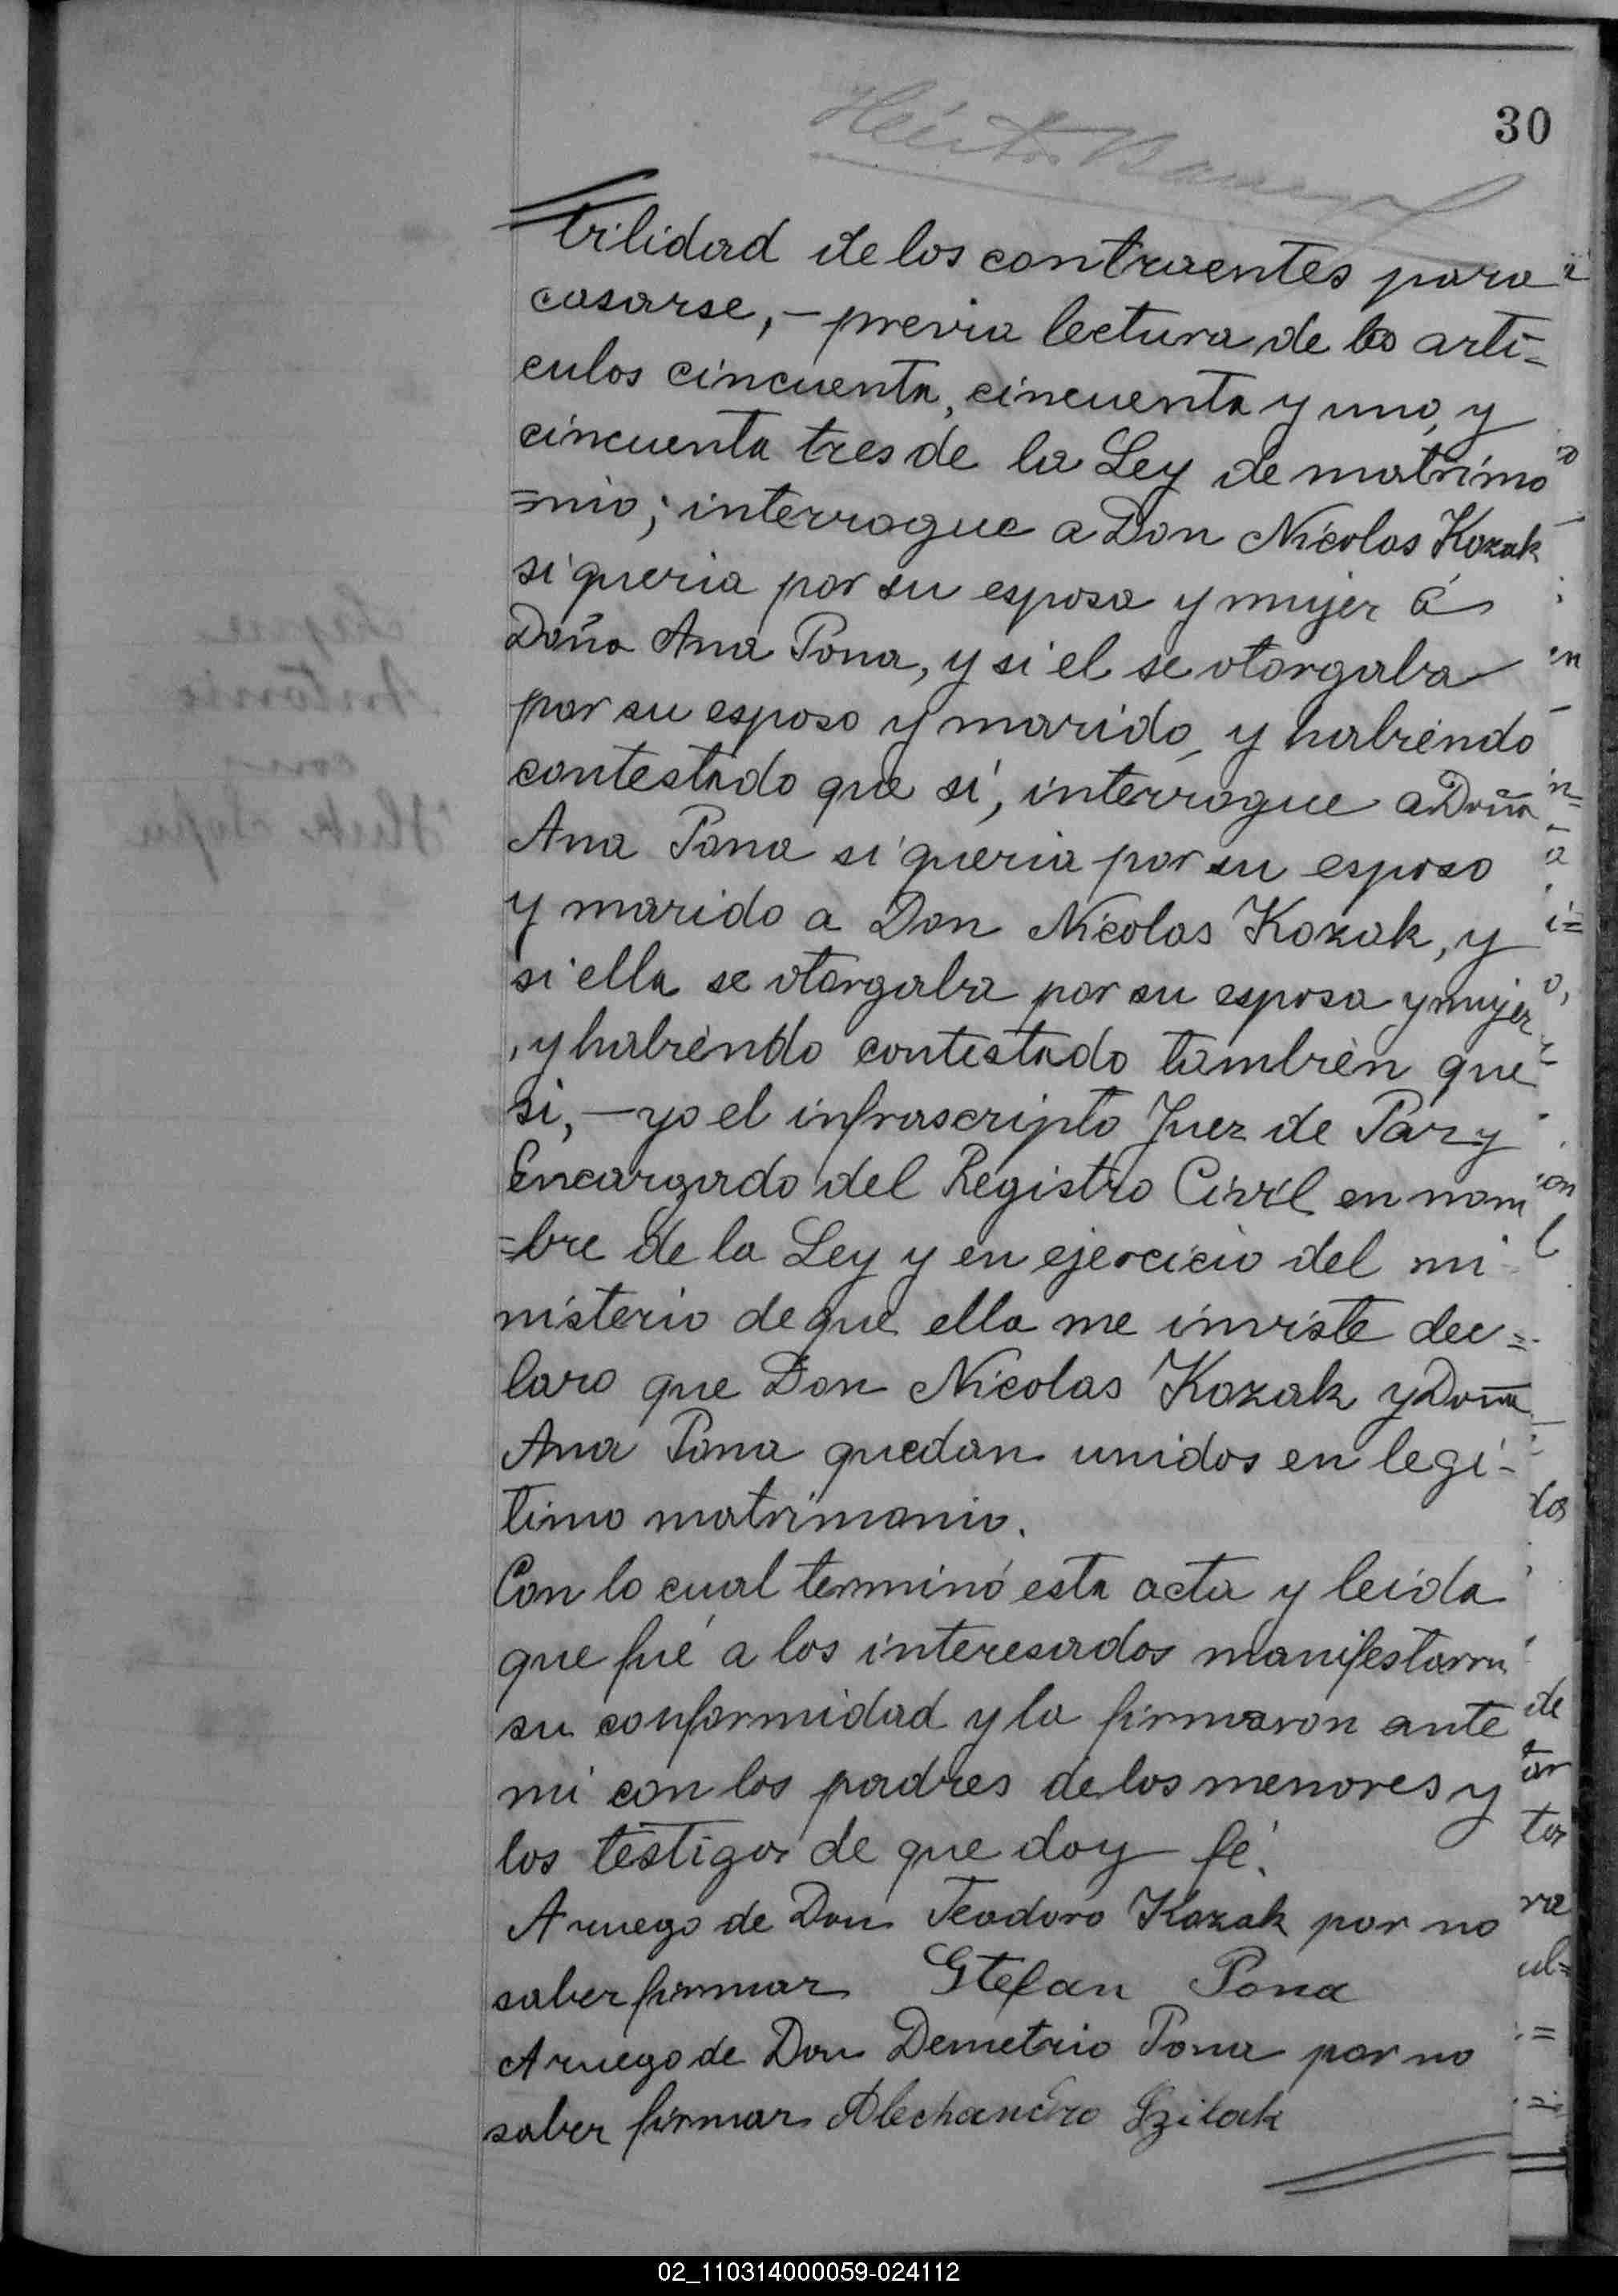 30
bilidad de los contraentes para
casarse, - previa lectura de los arti-
culos cincuenta, cincuenta y uno, y
cincuenta tres de la Ley de matrimo
=nio; interrogue a Don Nicolas Kozak
si queria por su esposa y mujer á
Doña Ana Pona, y si el se otorgaba
por su esposo y marido, y habiendo
contestado que si, interrogue a Doña
Ana Pona si queria por su esposo
y marido a Don Nicolas Kozak, y
si ella se otorgaba por su esposa y mujer
, y habiendo contestado tambien que
si, - yo el infrascripto Juez de Paz y
Encargado del Registro Civil en nom
=bre de la Ley y en ejercicio del mi
nisterio de que ella me inviste dec=
laro que Don Nicolas Kozak y Doña
Ana Pona quedan unidos en legi-
timo matrimonio.
Con lo cual terminó esta acta y leida
que fué a los interesados manifestaron
su conformidad y la firmaron ante
mi con los padres de los menores y
los testigos de que doy fé.
A ruego de Don Teodoro Kozak por no
saber firmar Stefan Pona
A ruego de Don Demetrio Pona por no
saber firmar Alechandro Szilak
02_110314000059-024112